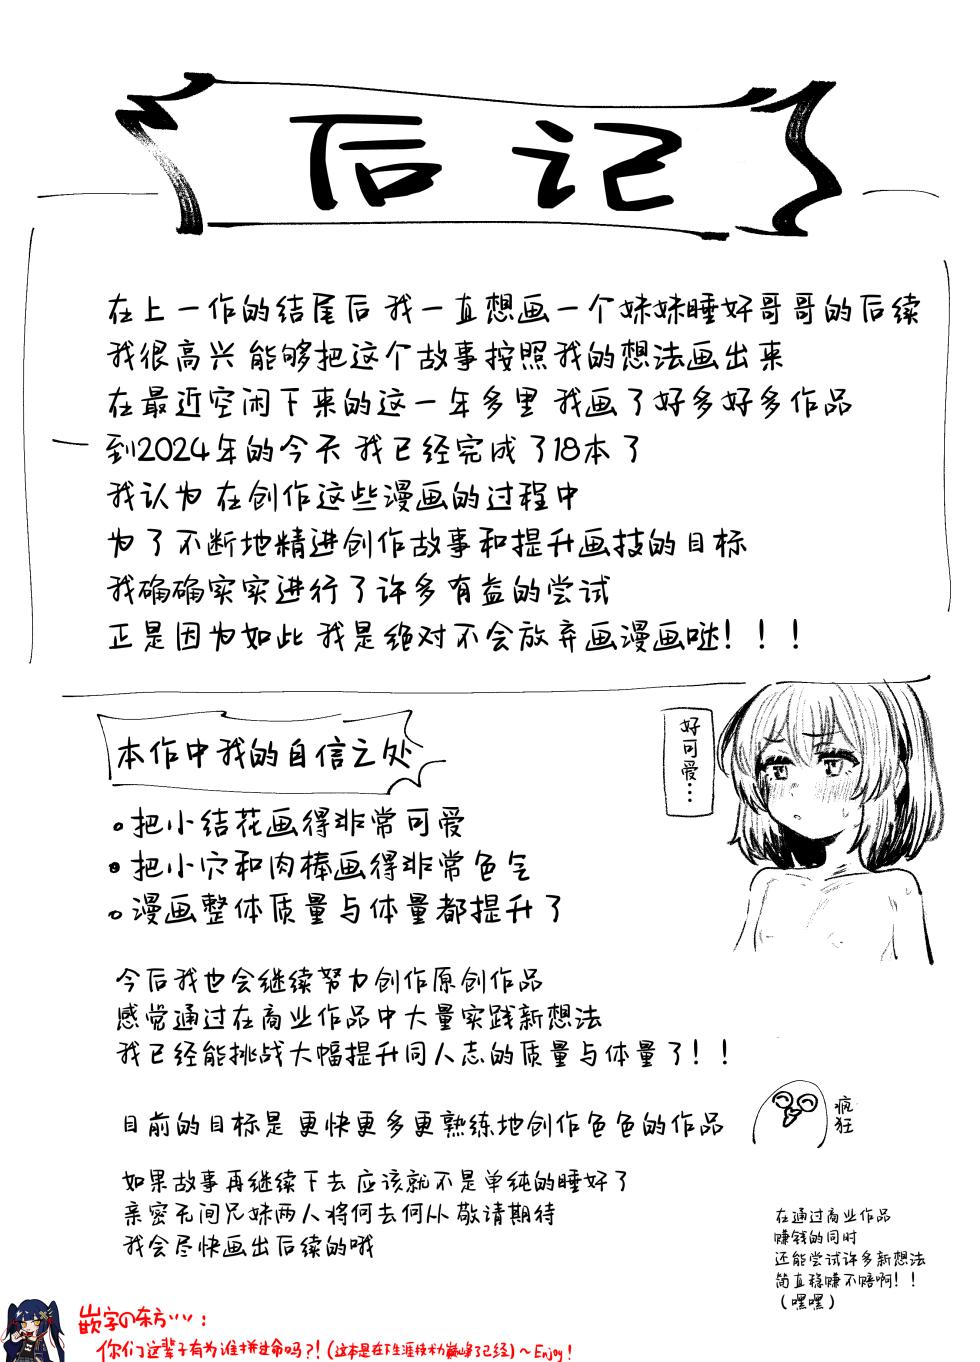 后记
在上一作的结尾后 我一直想画一个妹妹睡奸哥哥的后续
我很高兴 能够把这个故事按照我的想法画出来
在最近空闲下来的这一年多里 我画了好多好多作品
到2024年的今天 我已经完成了18本了
我认为 在创作这些漫画的过程中
为了不断地精进创作故事和提升画技的目标
我确确实实进行了许多有益的尝试
正是因为如此 我是绝对不会放弃画漫画哒！！！
本作中我的自信之处
好可爱…
。把小结花画得非常可爱
。把小穴和肉棒画得非常色气
。漫画整体质量与体量都提升了
今后我也会继续努力创作原创作品
感觉通过在商业作品中大量实践新想法
我已经能挑战大幅提升同人志的质量与体量了！！
目前的目标是 更快更多更熟练地创作色色的作品
疯狂
如果故事再继续下去 应该就不是单纯的睡奸了
亲密无间兄妹两人将何去何从 敬请期待
我会尽快画出后续的哦
在通过商业作品
赚钱的同时
还能尝试许多新想法
简直稳赚不赔啊！！
（嘿嘿）
嵌字の东方：
你们这辈子有为谁拼过命吗？！（这本是在下生涯技术力巅峰了已经）～Enjoy！